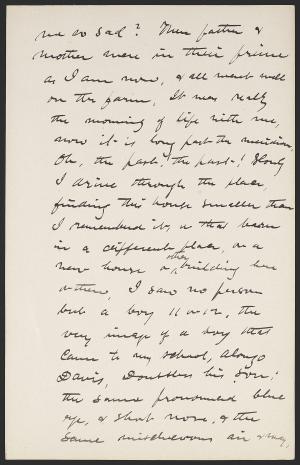 me so sad? Then father &
mother were in their prime
as I am now, & all went well
on the farm. It was really
the morning of life with me,
now it is long past the meridian.
Oh, the past! the past! Slowly
I drive through the place,
finding this house smaller than
I remembered it, or that barn
in a different place, or a
new house or other building here
or there. I saw no person
but a boy 11 or 12, the
very image of a boy that
came to my school, Alonzo
Davis, Doubtless his son:
the same pronounced blue
eye, & shab nose, & the
same mischievous air &